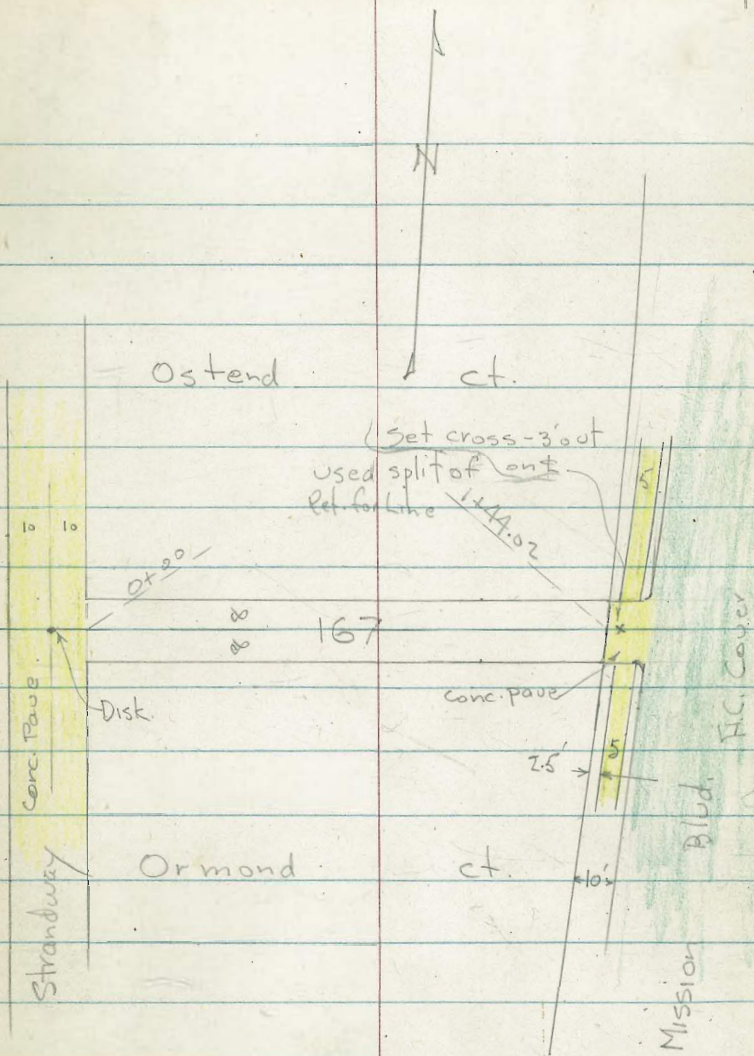 N
Ostend ct.
Set cross-3'out
used split of on ⅊
Pet. for Line
1+44.02
10 10
0+00
8
8
167
x
5
Conc. Pave.
Disk.
conc. pave
2.5'
5
Ormond ct.
10'
Strandway
Mission Blvd.
A.C. Cover